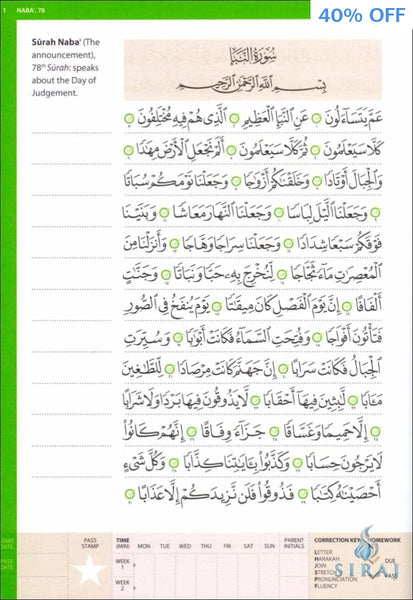 1 NABA', 78
40% OFF
Sūrah Naba' (The
announcement),
78th Sūrah: speaks
about the Day of
Judgement.
سُورَةُ النَّبَإِ
بِسْمِ اللَّهِ الرَّحْمَٰنِ الرَّحِيمِ
عَمَّ يَتَسَاءَلُونَ ۝ عَنِ النَّبَإِ الْعَظِيمِ ۝ الَّذِي هُمْ فِيهِ مُخْتَلِفُونَ ۝
كَلَّا سَيَعْلَمُونَ ۝ ثُمَّ كَلَّا سَيَعْلَمُونَ ۝ أَلَمْ نَجْعَلِ الْأَرْضَ مِهَٰدًا ۝
وَالْجِبَالَ أَوْتَادًا ۝ وَخَلَقْنَٰكُمْ أَزْوَٰجًا ۝ وَجَعَلْنَا نَوْمَكُمْ سُبَاتًا
۝ وَجَعَلْنَا الَّيْلَ لِبَاسًا ۝ وَجَعَلْنَا النَّهَارَ مَعَاشًا ۝ وَبَنَيْنَا
فَوْقَكُمْ سَبْعًا شِدَادًا ۝ وَجَعَلْنَا سِرَاجًا وَهَّاجًا ۝ وَأَنزَلْنَا مِنَ
الْمُعْصِرَٰتِ مَاءً ثَجَّاجًا ۝ لِّنُخْرِجَ بِهِ حَبًّا وَنَبَاتًا ۝ وَجَنَّٰتٍ
أَلْفَافًا ۝ إِنَّ يَوْمَ الْفَصْلِ كَانَ مِيقَٰتًا ۝ يَوْمَ يُنفَخُ فِي الصُّورِ
فَتَأْتُونَ أَفْوَاجًا ۝ وَفُتِحَتِ السَّمَاءُ فَكَانَتْ أَبْوَٰبًا ۝ وَسُيِّرَتِ
الْجِبَالُ فَكَانَتْ سَرَابًا ۝ إِنَّ جَهَنَّمَ كَانَتْ مِرْصَادًا ۝ لِّلطَّٰغِينَ
مَـَٔابًا ۝ لَّٰبِثِينَ فِيهَا أَحْقَابًا ۝ لَّا يَذُوقُونَ فِيهَا بَرْدًا وَلَا شَرَابًا
۝ إِلَّا حَمِيمًا وَغَسَّاقًا ۝ جَزَاءً وِفَاقًا ۝ إِنَّهُمْ كَانُوا
لَا يَرْجُونَ حِسَابًا ۝ وَكَذَّبُوا بِـَٔايَٰتِنَا كِذَّابًا ۝ وَكُلَّ شَيْءٍ
أَحْصَيْنَٰهُ كِتَٰبًا ۝ فَذُوقُوا فَلَن نَّزِيدَكُمْ إِلَّا عَذَابًا ۝
START DATE
PASS DATE
PASS STAMP
TIME (MIN) MON TUE WED THU FRI SAT SUN PARENT INITIALS
WEEK 1
WEEK 2
CORRECTION KEY
LETTER
HARAKAH
JOIN
STRETCH
PRONUNCIATION
FLUENCY
HOMEWORK
DUE
PASS
SIRAJ